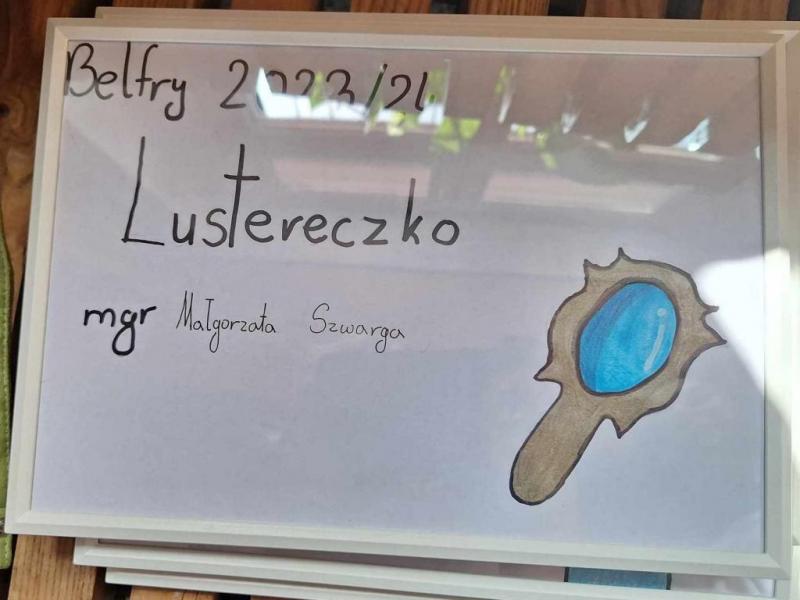 Belfry 2023/24
Lustereczko
mgr Małgorzata Szwarga